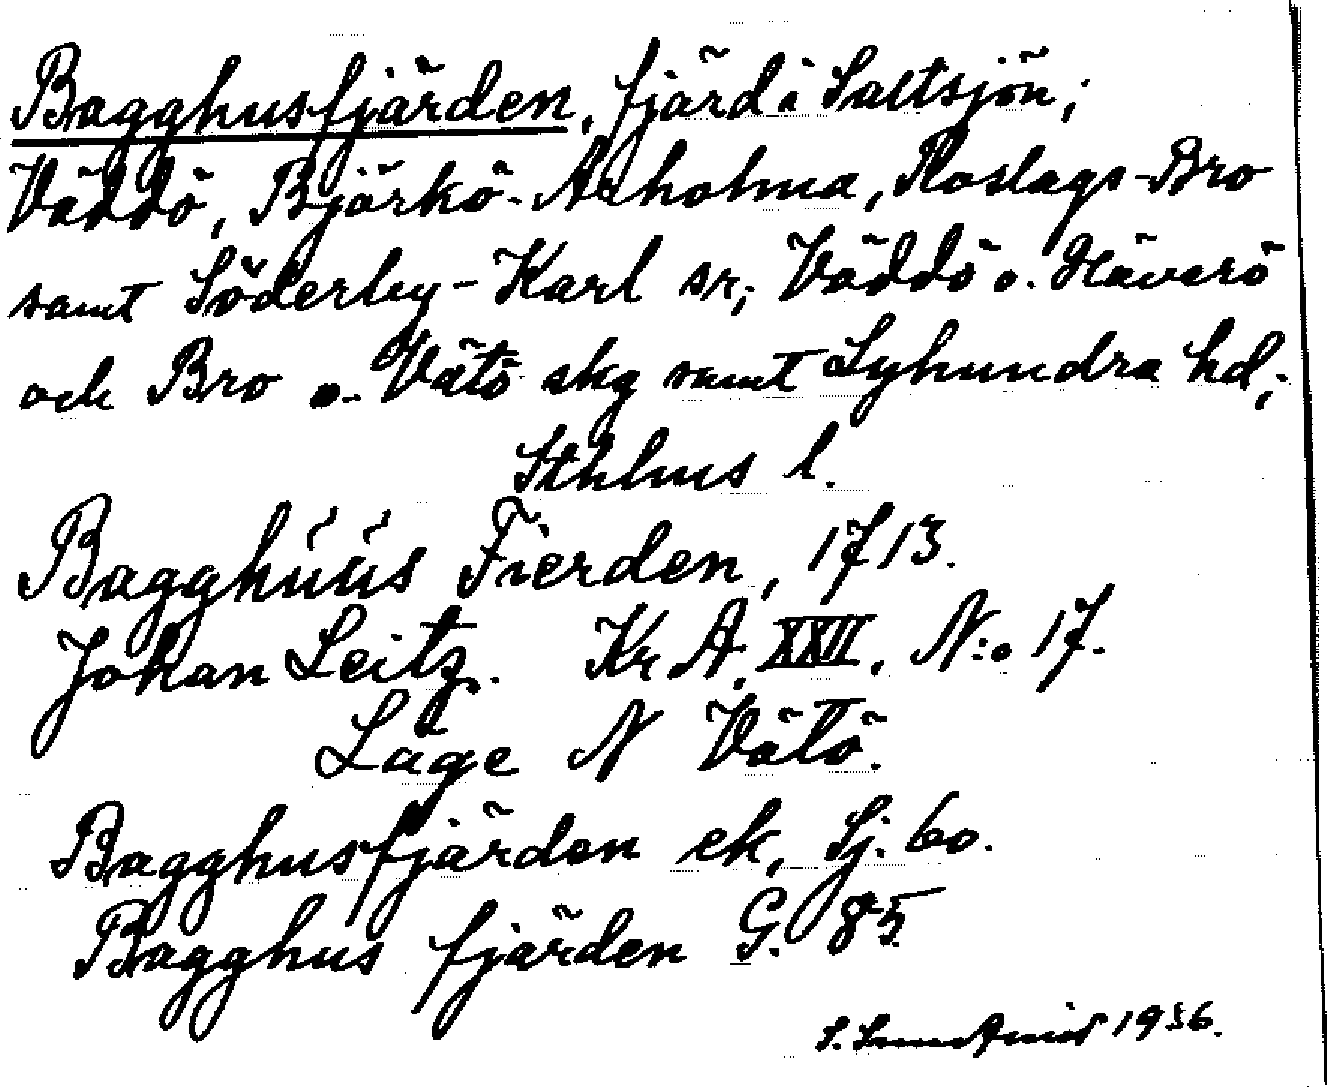 Bagghusfjärden, fjärd i Saltsjön;
Väddö, Björkö-Arholma, Roslags-Bro
samt Söderby-Karl sr; Väddö o. Häverö
och Bro o. Vätö skg samt Lyhundra hd;
Sthlms l.
Bagghúús Fierden, 1713.
Johan Leitz. Kr A. XXII, N:o 17.
Läge N Vätö.
Bagghusfjärden ek, Sj. 60.
Bagghus fjärden G. 85
S. 1936.